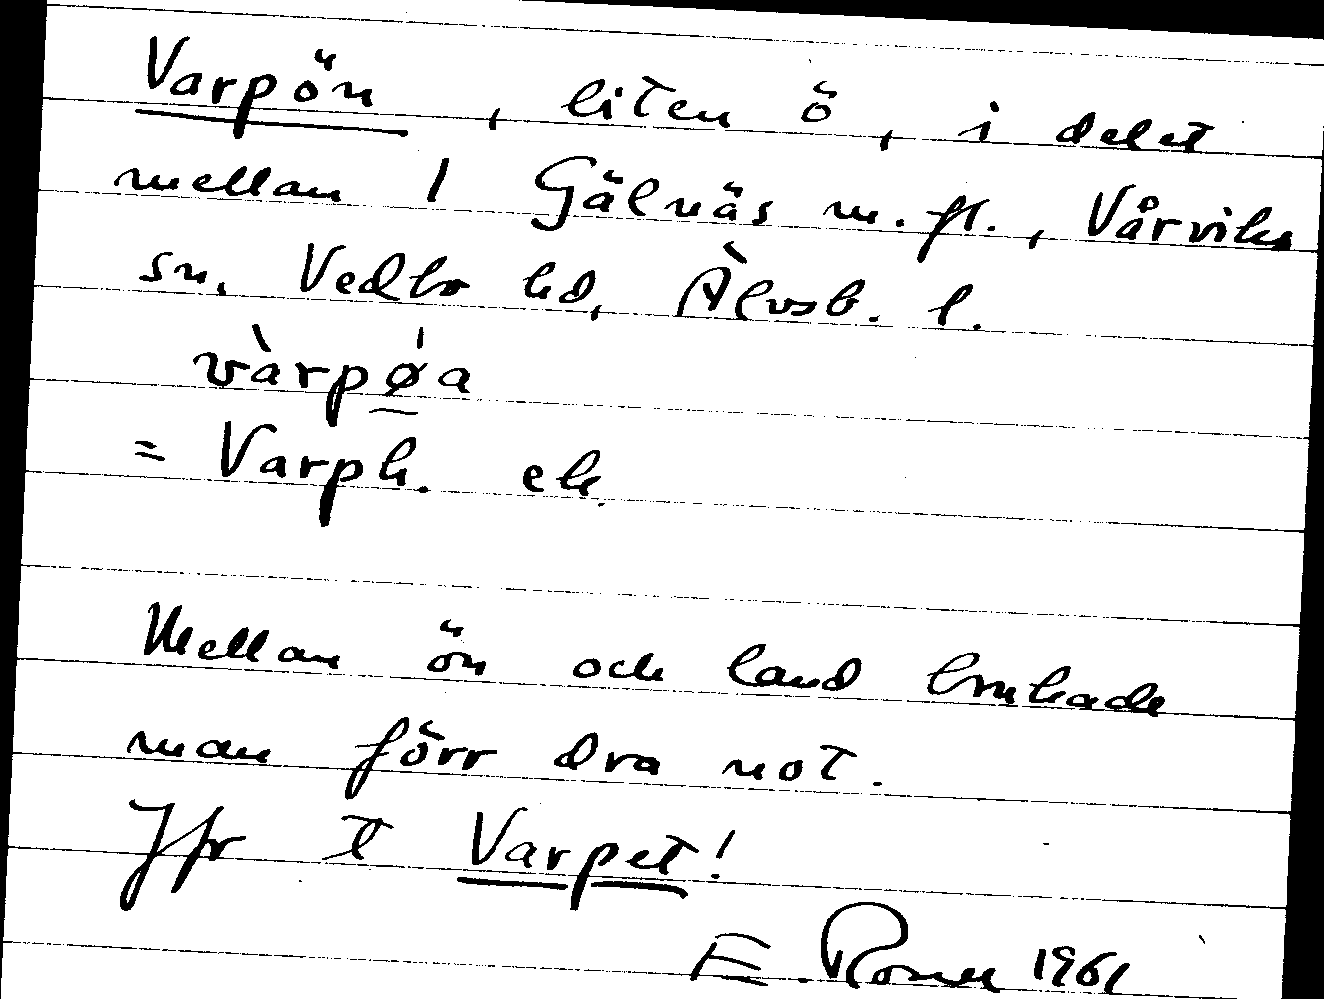 Varpön, liten ö, i delet
mellan 1 Gälnäs m.fl., Vårviks
sn. Vedbo hd, Älvsb. l.
vàrpø̀a
= Varpk. ek.
Mellan ön och land brukade
man förr dra not.
Jfr t Varpet!
E. 1961